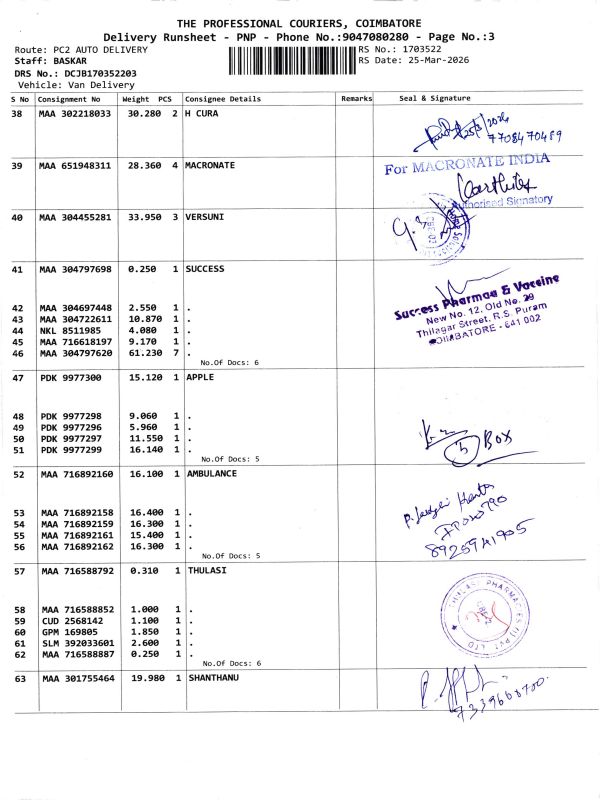 THE PROFESSIONAL COURIERS, COIMBATORE
Delivery Runsheet - PNP - Phone No.:9047080280 - Page No.:3
Route: PC2 AUTO DELIVERY RS No.: 1703522
Staff: BASKAR RS Date: 25-Mar-2026
DRS No.: DCJB170352203
Vehicle: Van Delivery
S No Consignment No Weight PCS Consignee Details Remarks Seal & Signature
38 MAA 302218033 30.280 2 H CURA
25/3/2026
7708470489
39 MAA 651948311 28.360 4 MACRONATE
For MACRONATE INDIA
Authorised Signatory
40 MAA 304455281 33.950 3 VERSUNI
41 MAA 304797698 0.250 1 SUCCESS
Success Pharmaa & Vaccine
New No. 12, Old No. 29
Thilagar Street, R.S. Puram
COIMBATORE - 641 002
42 MAA 304697448 2.550 1 .
43 MAA 304722611 10.870 1 .
44 NKL 8511985 4.080 1 .
45 MAA 716618197 9.170 1 .
46 MAA 304797620 61.230 7 .
No.Of Docs: 6
47 PDK 9977300 15.120 1 APPLE
48 PDK 9977298 9.060 1 .
49 PDK 9977296 5.960 1 .
50 PDK 9977297 11.550 1 .
51 PDK 9977299 16.140 1 .
5 BOX
No.Of Docs: 5
52 MAA 716892160 16.100 1 AMBULANCE
53 MAA 716892158 16.400 1 .
54 MAA 716892159 16.300 1 .
55 MAA 716892161 15.400 1 .
56 MAA 716892162 16.300 1 .
8925941905
No.Of Docs: 5
57 MAA 716588792 0.310 1 THULASI
THULASI PHARMACIES (I) PVT LTD
58 MAA 716588852 1.000 1 .
59 CUD 2568142 1.100 1 .
60 GPM 169805 1.850 1 .
61 SLM 392033601 2.600 1 .
62 MAA 716588887 0.250 1 .
No.Of Docs: 6
63 MAA 301755464 19.980 1 SHANTHANU
7339608700